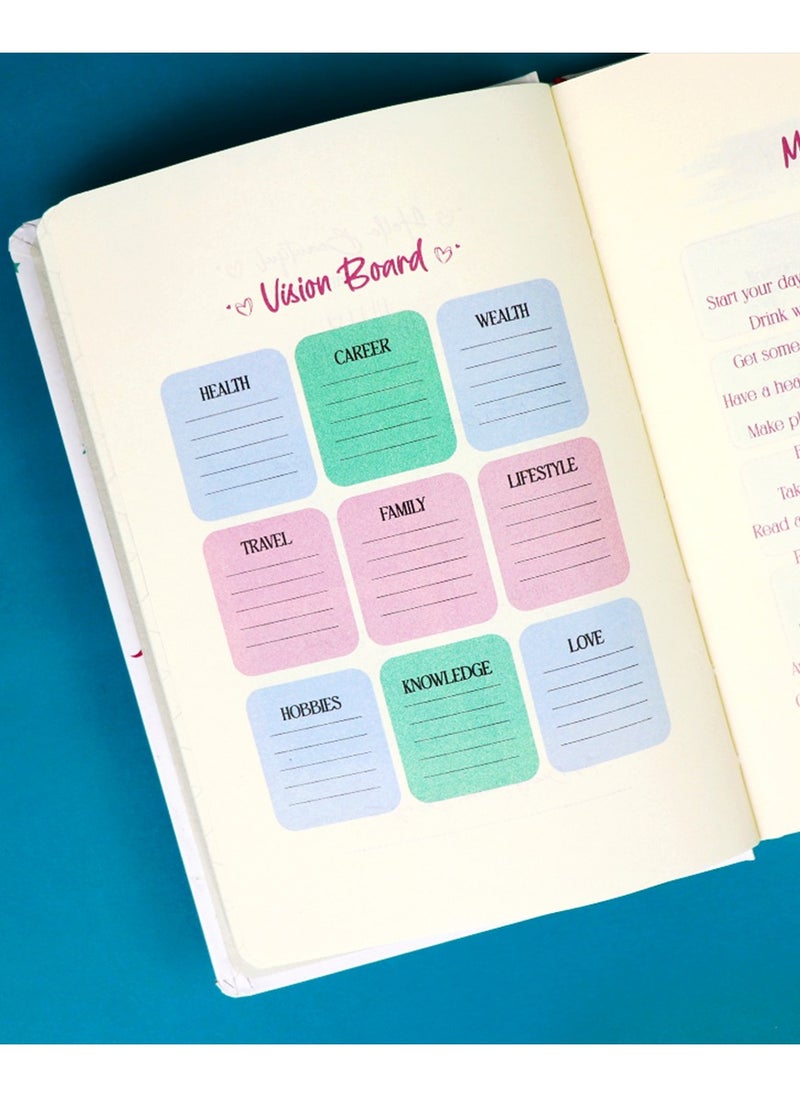 Vision Board
HEALTH
CAREER
WEALTH
TRAVEL
FAMILY
LIFESTYLE
HOBBIES
KNOWLEDGE
LOVE
M
Start your day
Drink w
Get some
Have a hea
Make pl
Tak
Read a